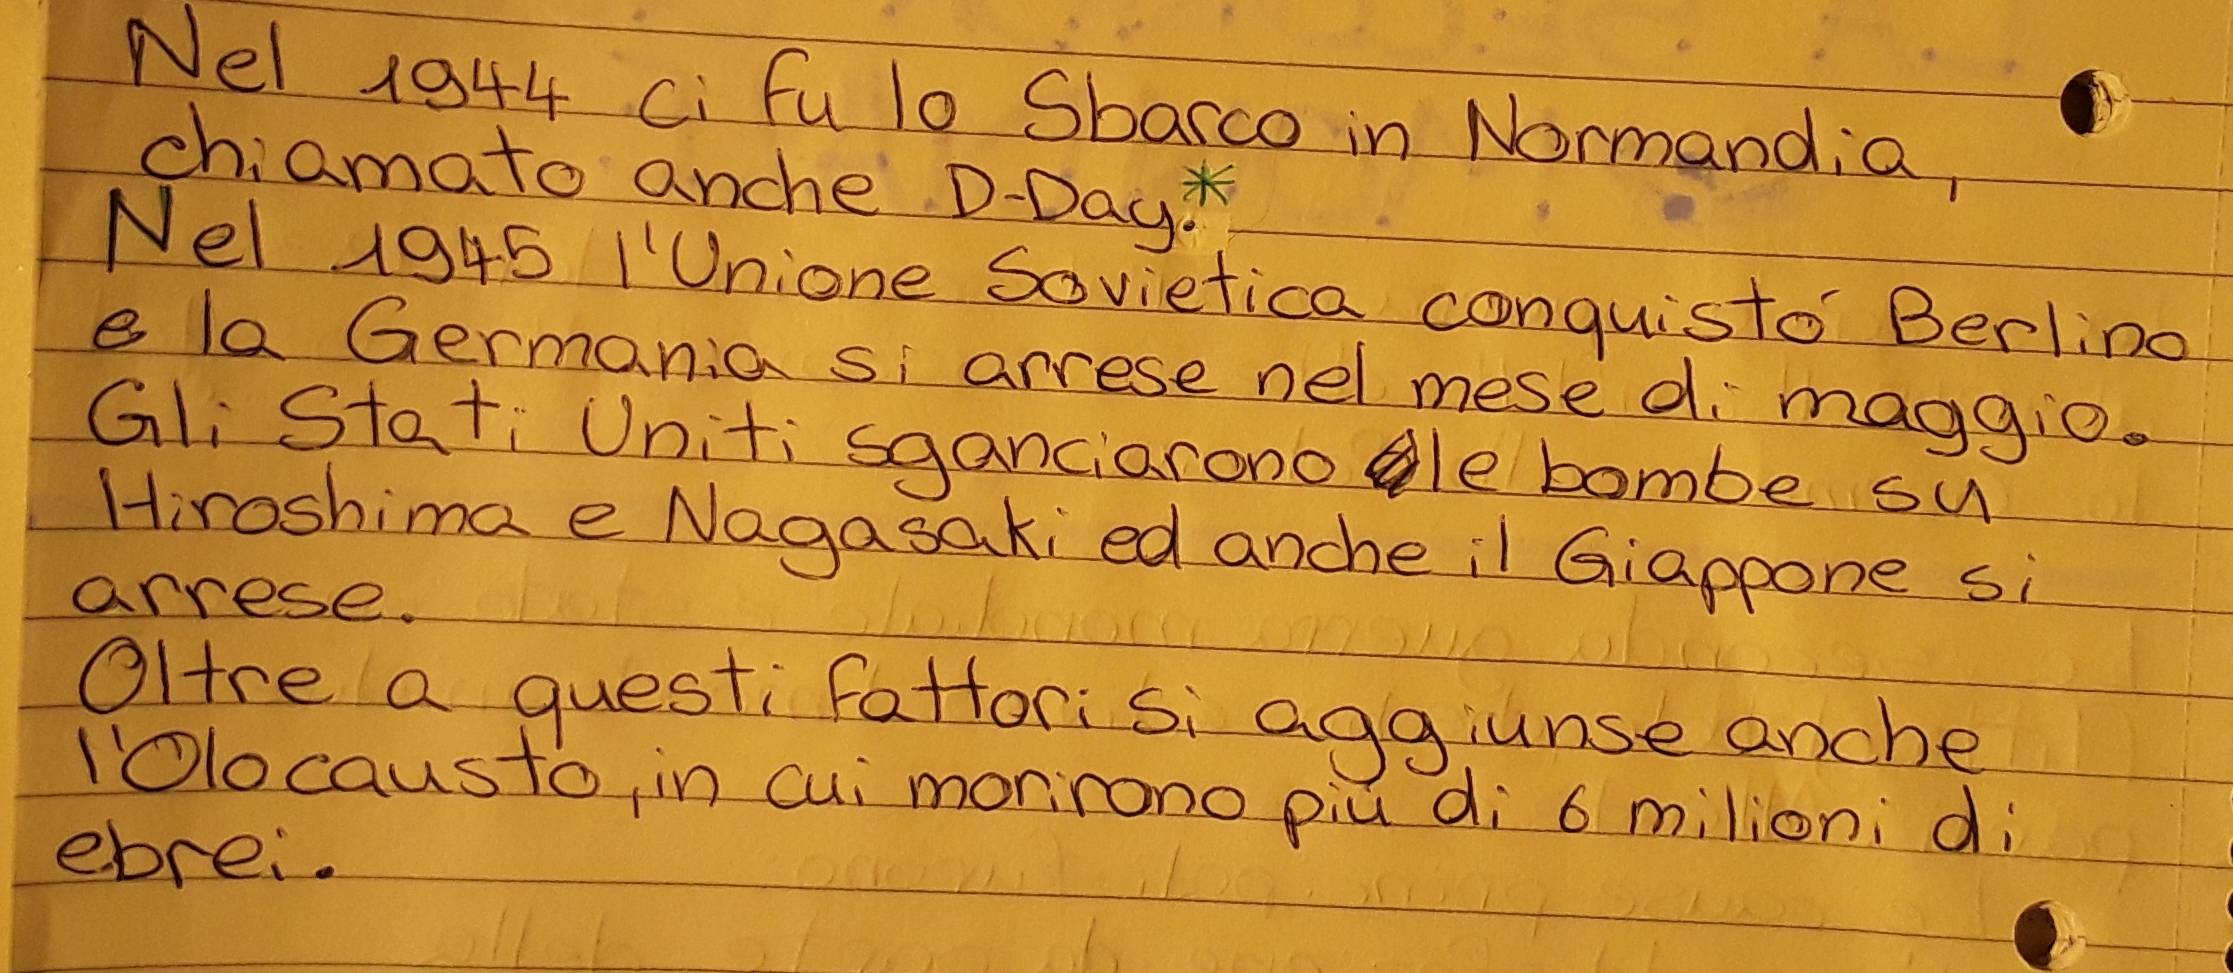 Nel 1944 ci fu lo Sbarco in Normandia,
chiamato anche D-Day.*
Nel 1945 l'Unione Sovietica conquistò Berlino
e la Germania si arrese nel mese di maggio.
Gli Stati Uniti sganciarono le bombe su
Hiroshima e Nagasaki ed anche il Giappone si
arrese.
Oltre a questi fattori si aggiunse anche
l'Olocausto, in cui morirono più di 6 milioni di
ebrei.